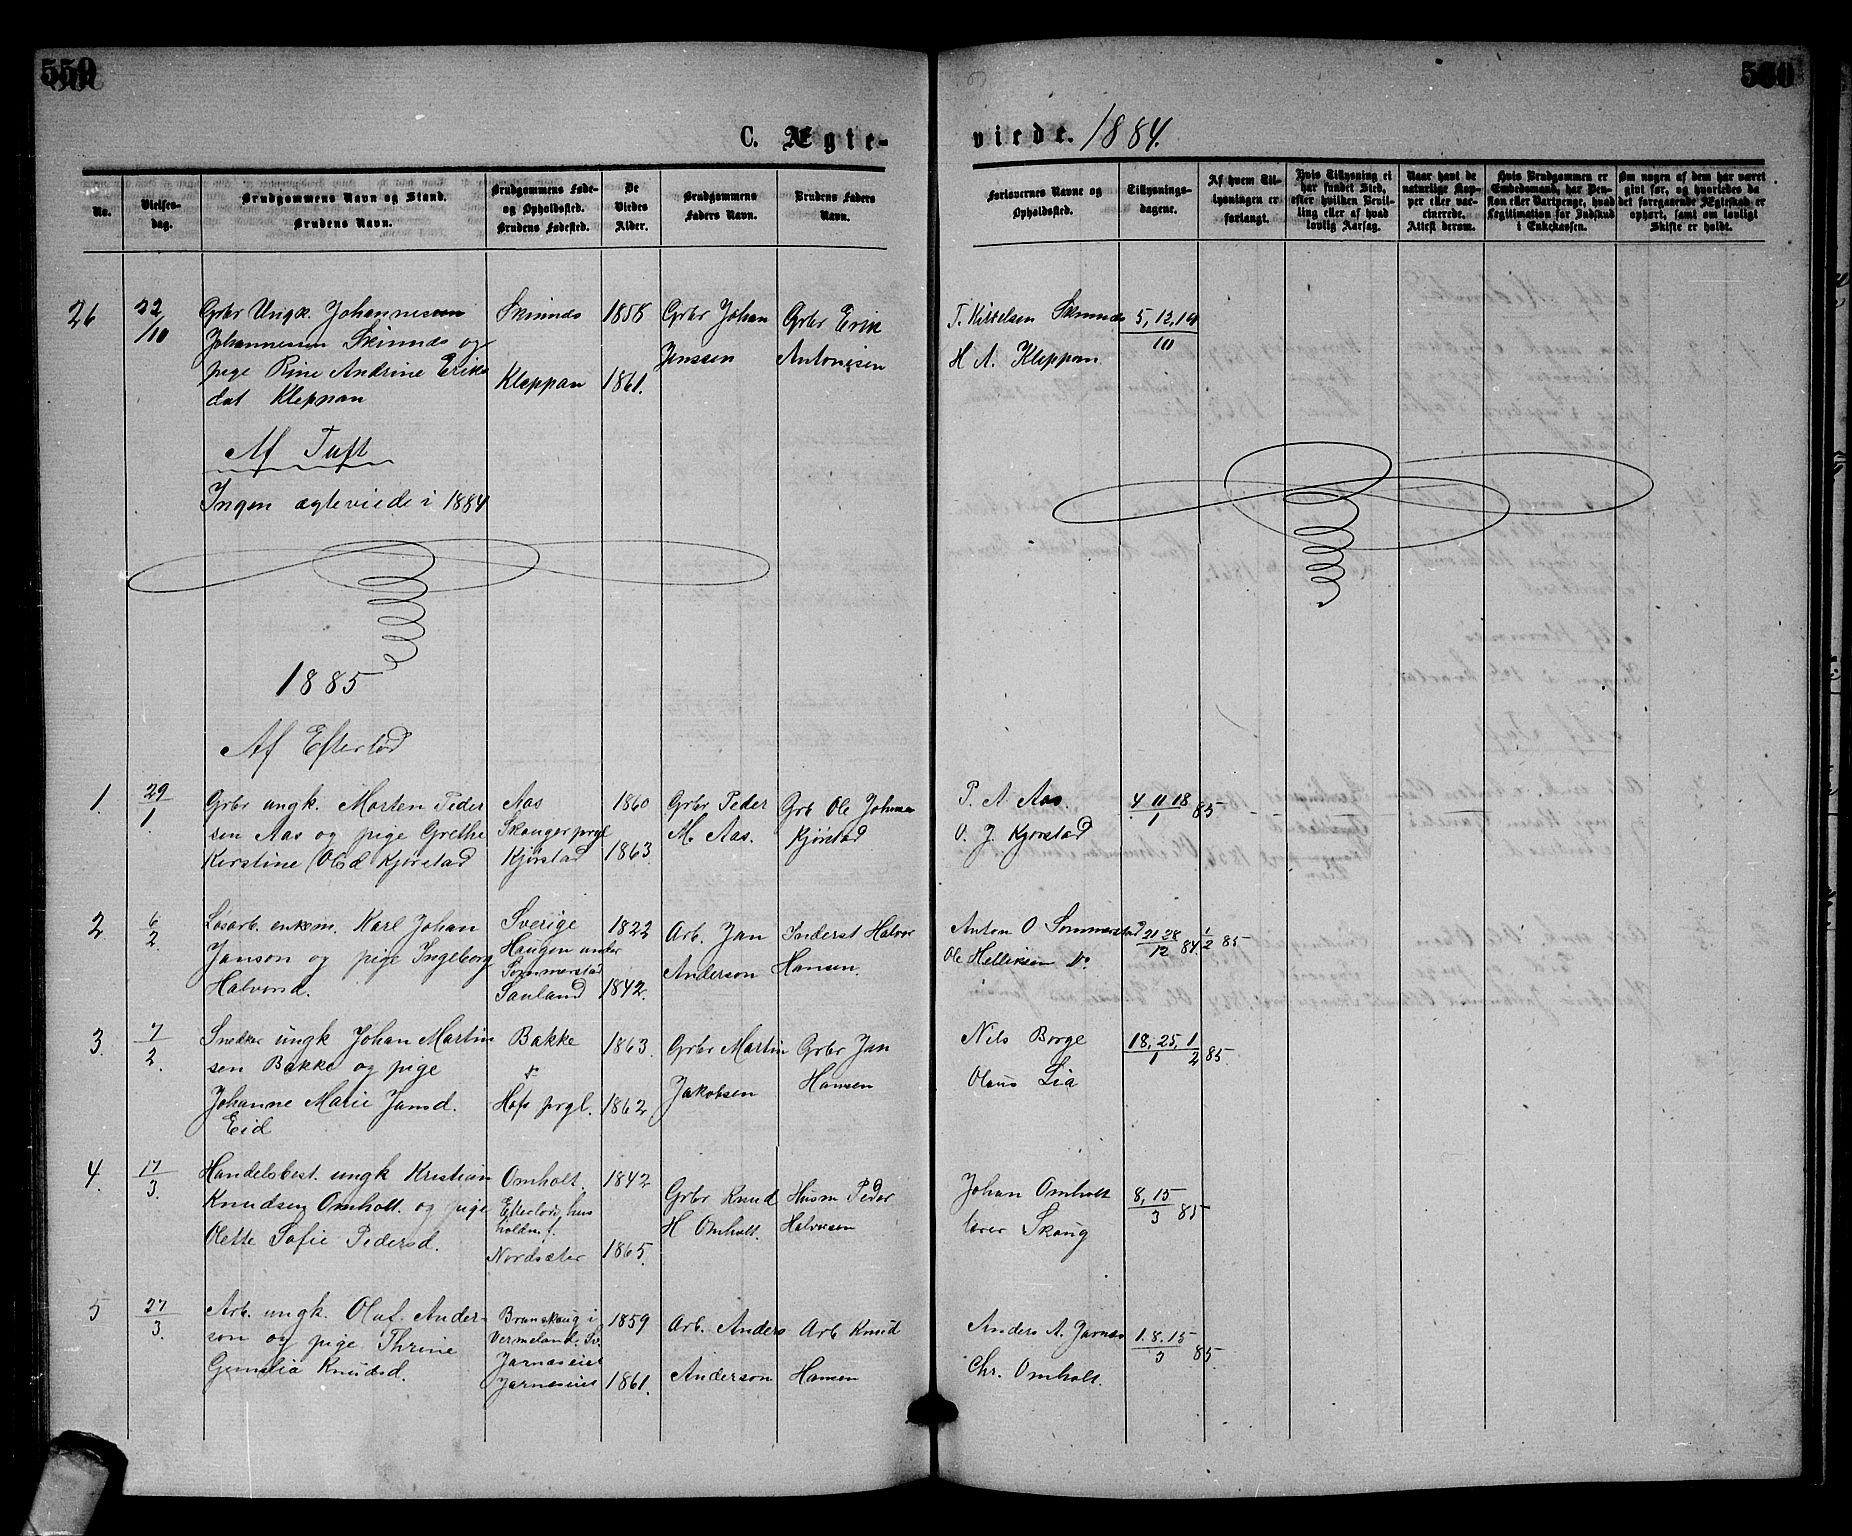 559
C. Ægte-
No.
Vielses-
dag.
Brudgommens Navn og Stand.
Brudens Navn.
Brudgommens Føde-
og Opholdssted.
Brudens Fødested.
De
Viedes
Alder.
Brudgommens
Faders Navn.
Brudens Faders
Navn.
26
22/10
Grbr Ungk. Johannes
Johannessen Skinnes og
pige Rine Andrine Eriks
dat Kleppan
Skinnes
Kleppan
1858
1861.
Grbr Johan
Jenssen
Grbr Erik
Antonisen
Af Tuft
Ingen ægteviede i 1884
1885
Af Efterlød
1.
29/1.
Grbr ungk. Morten Peder
sen Aas og pige Grethe
Kirstine Olsd Kjørstad
Aas
Skouger prgl
Kjørstad
1860
1863.
Grbr Peder
M. Aas.
Grb Ole Johnsen
Kjørstad
2
6/2.
Løsarb. enkem. Karl Johan
Janson og pige Ingeborg
Halvorsd.
Sverige
Haugen under
Sommerstad
Sauland
1822
1842.
Arb. Jan
Anderson
Inderst Halvor
Hansen.
3.
7/2.
Snedker ungk Johan Martin
sen Bakke og pige
Johanne Marie Jansd.
Eid
Bakke
Hofs prgl.
1863.
1862
Grbr Martin
Jakobsen
Grbr Jan
Hansen
4.
17/3.
Handelsbest. ungk Kristian
Knudsen Omholt. og pige
Olette Sofie Pedersd.
Omholt.
Efterlød, hus
holdn. f.
Nordsæter
1842
1865.
Grbr Knud
H Omholt.
Husm Peder
Halvorsen
5
27/3.
Arb. ungk. Olaf Ander
son og pige Thrine
Gunelia Knudsd.
Branskaug i
Vermeland. Sv.
Jarnæseiet
Jarnæseiet
1859
1861.
Arb. Anders
Anderson
Arb Knud
Hansen
560
viede. 1884.
Forlovernes Navne og
Opholdssted.
Tillysnings-
dagene.
Af hvem Til-
lysningen er
forlangt.
Hvis Tillysning ei
har fundet Sted,
efter hvilken Bevil-
ling eller af hvad
lovlig Aarsag.
Naar havt de
naturlige Kop-
per eller vac-
cinerede.
Attest derom.
Hvis Brudgommen er
Embedsmand, har Pen-
sion eller Vartpenge, hvad
Legitimation for Indskud
i Enkekassen.
Om nogen af dem har været
gift før, og hvorledes da
det foregaaende Ægteskab er
ophørt, samt om lovligt
Skifte er holdt.
T. Kittelsen Skinnes
H A. Kleppan
5, 12, 19
10
P. A Aas.
O. J. Kjørstad
4. 11 18
1
85
Anton O Sommerstad
Ole Helliksen Do
21 28
12
84
1/2 85
Nils Borge
Olaus Lia
18, 25, 1
1 2 85
Johan Omholt
lærer Skoug
8, 15
3 85
Anders A. Jarnæs
Chr. Omholt.
1. 8. 15
3 85.